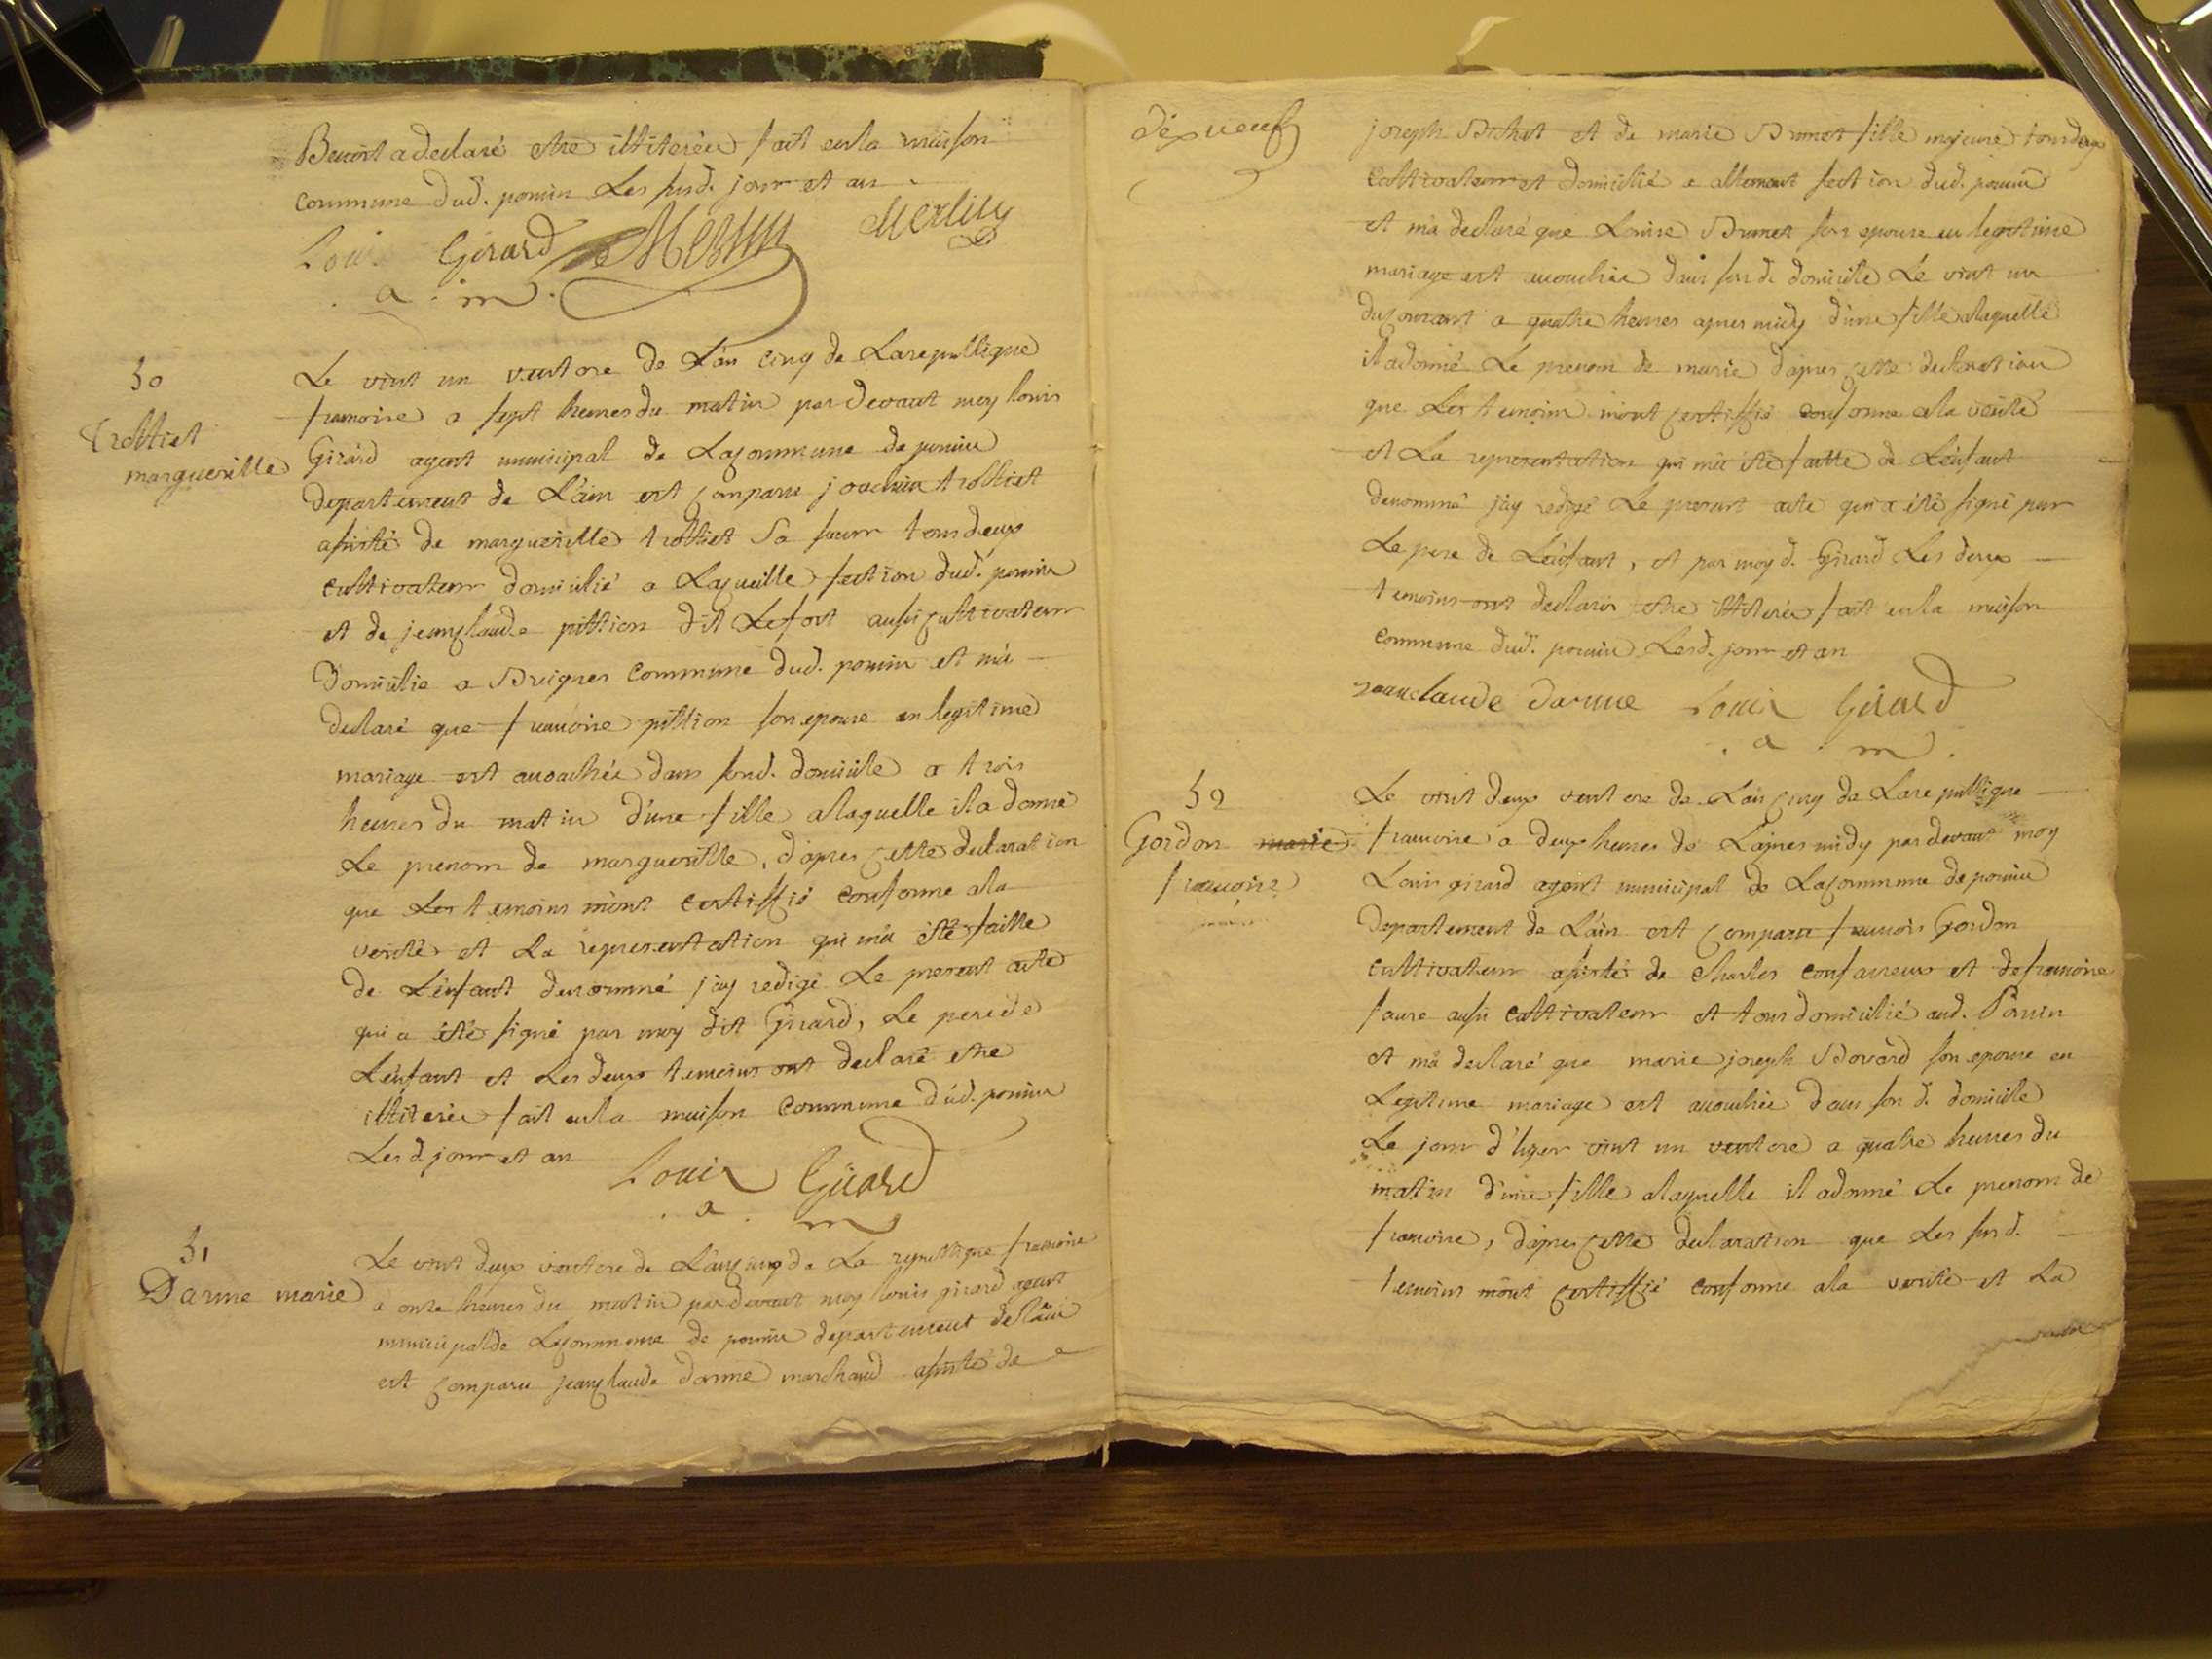 Benoit a declaré etre illiterée fait en la maison
commune dud. poncin Les susd. jour et an
Louis Girard Merlin Merlin
a . m .
30
Trolliet
margueritte
Le vint un ventose de L'an cinq de La republique
francoise a sept heures du matin par devant moy louis
Girard agent municipal de La commune de poncin
departement de L'ain est comparu joachim trolliet
assisté de margueritte trolliet Sa soeur tous deux
cultivateur domicilié a La section dud. poncin
et de jean claude pittion dit Lefort aussi cultivateur
domicilie a Breignes commune dud. poncin et m'a
declaré que francoise pittion son epouse en legitime
mariage est accouchée dans sond. domicile a trois
heures du matin d'une fille a laquelle il a donné
Le prenom de margueritte, d'apres cette declaration
que Les temoins m'ont certiffié conforme a la
verité et La representation qui m'a été faitte
de L'enfant denommé j'ay redigé Le present acte
qui a été signé par moy dit Girard, Le pere de
L'enfant et Les deux temoins ont declaré etre
illiterée fait en la maison commune dud. poncin
Les d. jour et an
Louis Girard
a . m
31
Darme marie
Le vint deux ventose de L'an cinq de La republique francoise
a onze heures du matin par devant moy louis girard agent
municipal de La commune de poncin departement de L'ain
est comparu jean claude darme marchand assisté de
dix neuf
joseph Bichat et de marie Brunet fille majeure tous deux
cultivateur et domicilié a allement section dud. poncin
et m'a declaré que Louise Brunet son epouse en legitime
mariage est accouchée dans son d. domicile Le vint un
du courant a quatre heures apres midy d'une fille a laquelle
il a donné Le prenom de marie d'apres cette declaration
que Les temoins m'ont certiffié conforme a la verité
et La representation qui m'a été faitte de L'enfant
denommé j'ay redigé Le present acte qui a été signé par
Le pere de L'enfant, et par moy d. Girard Les deux
temoins ont declarés etre illiterée fait en la maison
commune dud. poncin Lesd. jour et an
jean claude darme Louis Girard
. a . m .
32
Gordon marie
francoise
Le vint deux ventose de L'an cinq de La republique
francoise a deux heures de L'apres midy par devant moy
Louis girard agent municipal de La commune de poncin
departement de L'ain est comparu francois Gordon
cultivateur assisté de Charles confavreux et de francoise
faure aussi cultivateur et tous domicilié aud. Poncin
et m'a declaré que marie joseph Bovard son epouse en
Legitime mariage est accouchée dans son d. domicile
Le jour d'hyer vint un ventose a quatre heures du
matin d'une fille a laquelle il a donné Le prenom de
francoise, d'apres cette declaration que Les susd.
temoins m'ont certiffié conforme a la verité et La